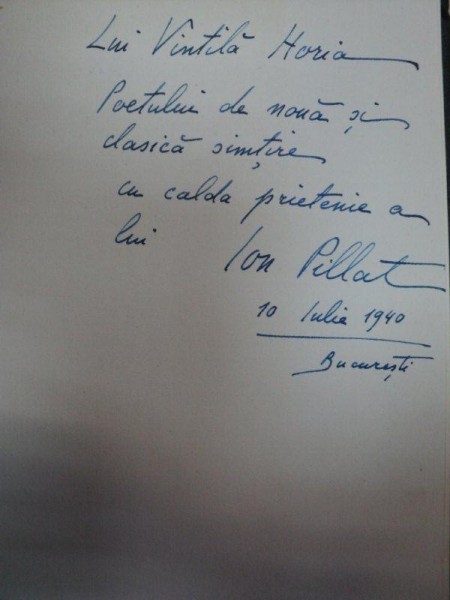 Lui Vintilă Horia
Poetului de nouă și
clasică simțire
cu calda prietenie a
lui Ion Pillat
10 Iulie 1940
București